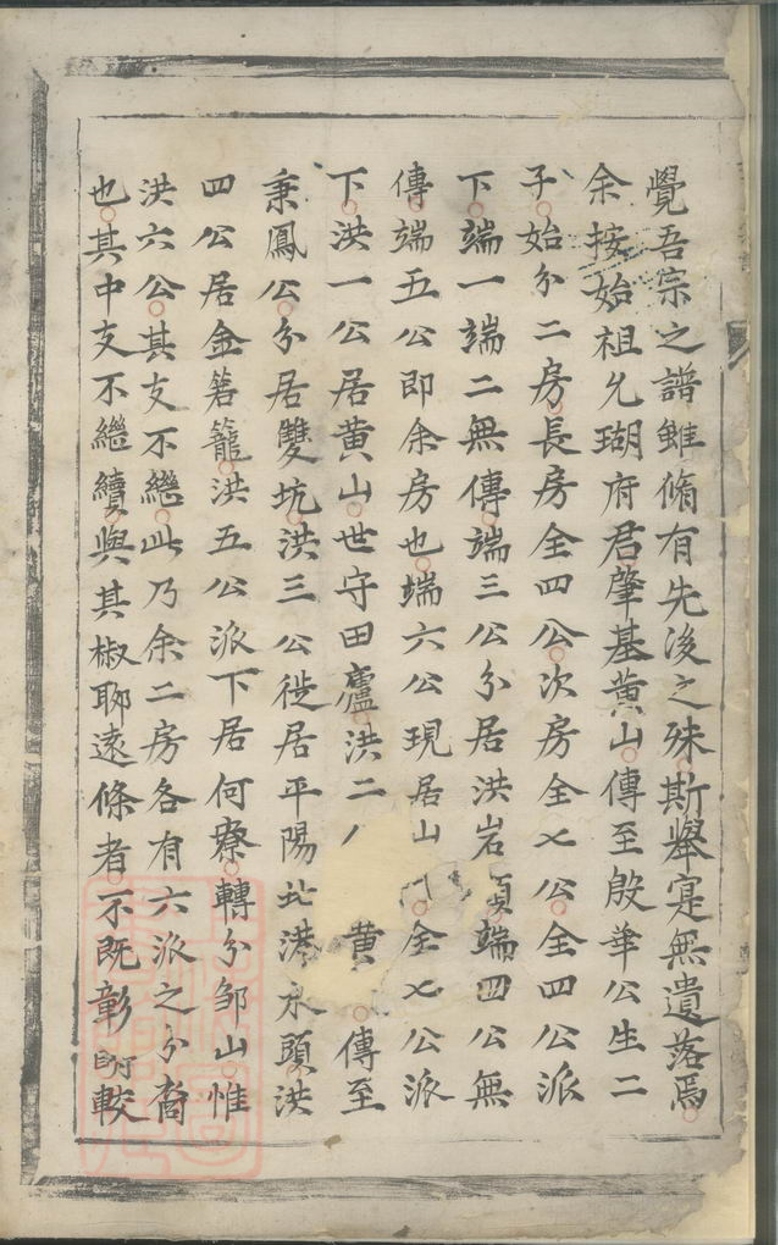 覺吾宗之譜雖脩有先後之殊斯舉寔無遺落焉
余按始祖允瑚府君肇基黄山傳至殷華公生二
子始分二房長房全四公次房全七公全四公派
下端一端二無傳端三公分居洪岩頂端四公無
傳端五公即余房也端六公現居山全七公派
下洪一公居黄山世守田廬洪二黄傳至
秉鳳公分居雙坑洪三公徙居平陽北港水頭洪
四公居金箬籠洪五公派下居何寮轉分邹山惟
洪六公其支不継此乃余二房各有六派之分裔
也其中支不繼續與其椒聊遠條者不既彰明較